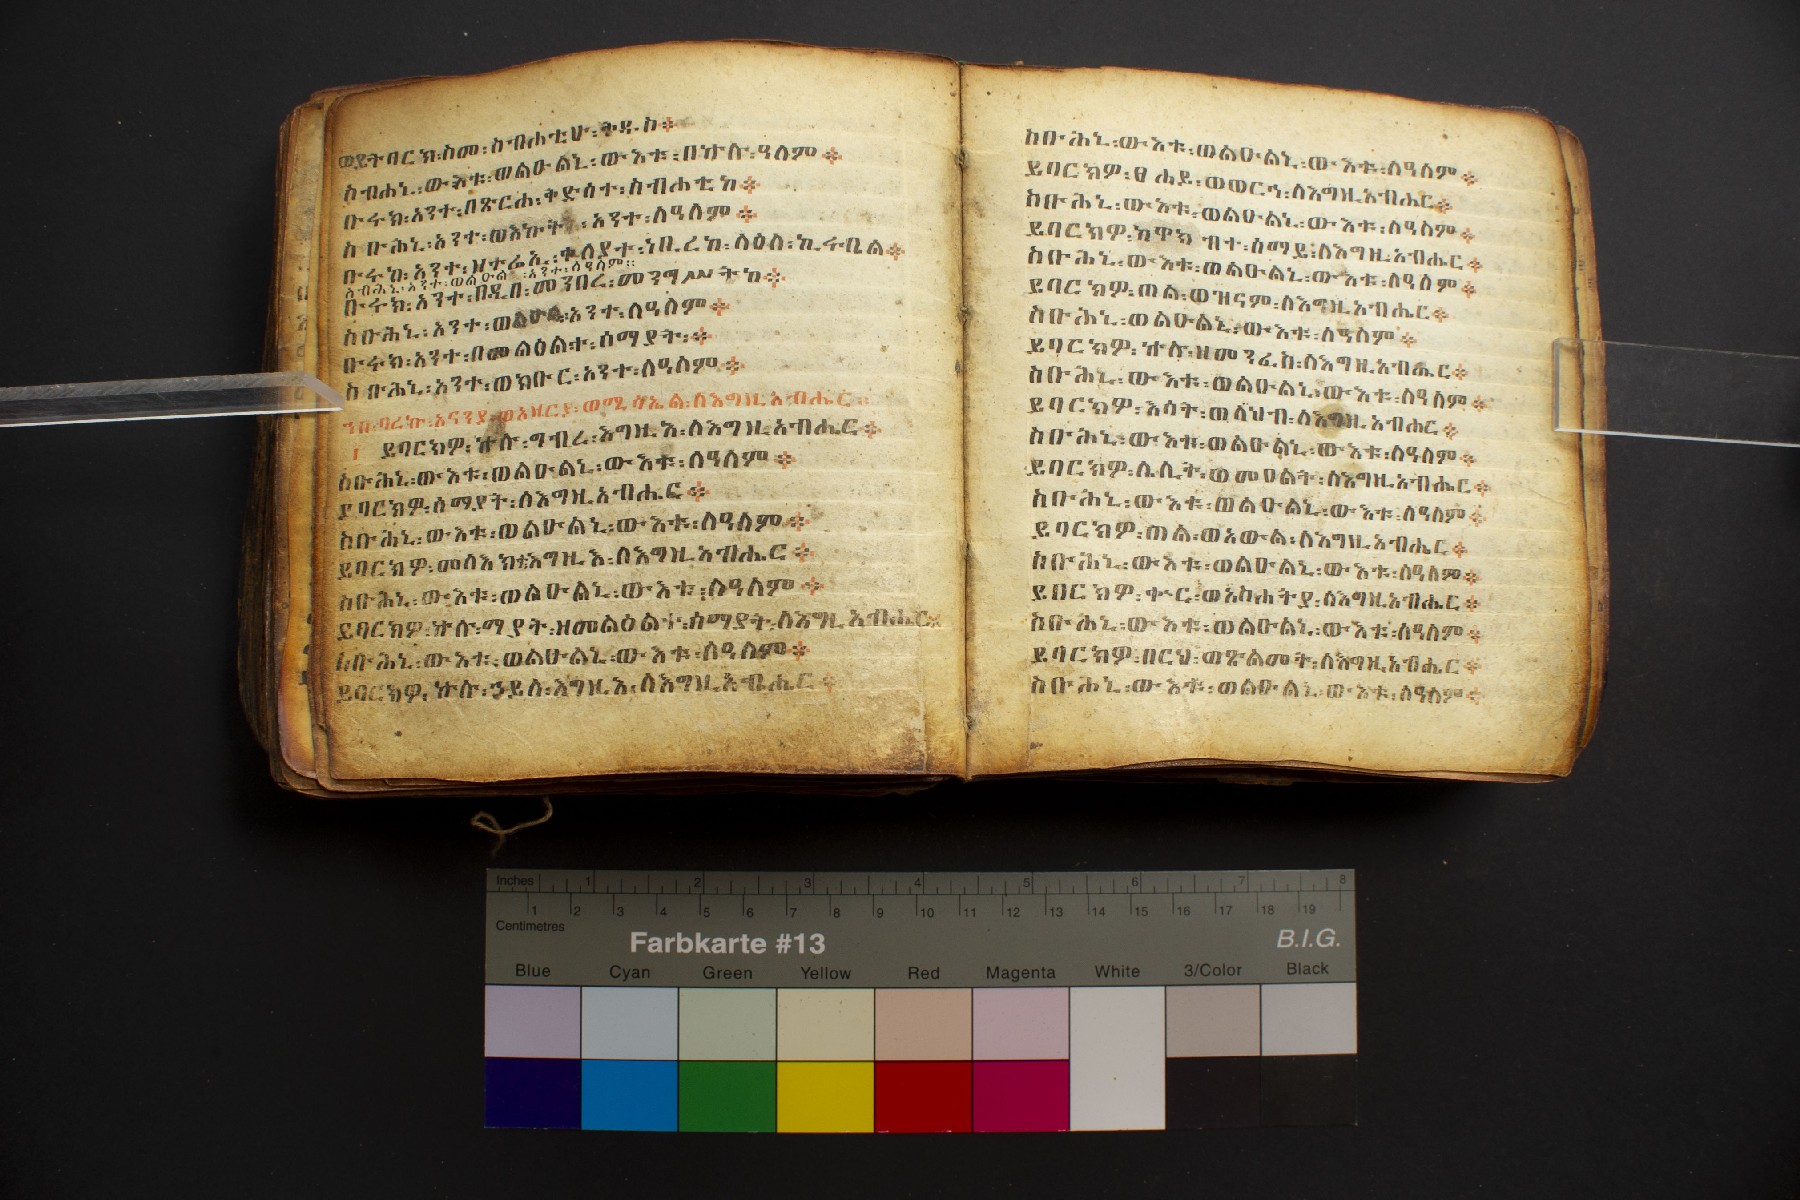 ወይትባርክ፡ስመ፡ስብሐቲሁ፡ቅዱስ፨
ስብሐኒ፡ውእቱ፡ወልዑልኒ፡ውእቱ፡በኵሉ፡ዓለም፨
ቡሩክ፡አንተ፡በጽርሐ፡ቅድሰተ፡ስብሐቲከ፨
ስቡሕኒ፡አንተ፡ወእኩት፡አንተ፡ለዓለም፨
ቡሩከ፡አንተ፡ዘትሬኢ፡ቀላያተ፡ነቢረከ፡ላዕለ፡ኪሩቤል፨
ስብሕኒ፡አንተ፡ወልዑል፡አንተ፡ለዓለም።
ቡሩክ፡አንተ፡በዲበ፡መንበረ፡መንግሥትከ፨
ስቡሕኒ፡አንተ፡ወልዑል፡አንተ፡ለዓለም፨
ቡሩክ፡አንተ፡በመልዕልተ፡ሰማያት፡፨
ስቡሕኒ፡አንተ፡ወክቡር፡አንተ፡ለዓለም፨
ባረኩ፡አናንያ፡ወአዛርያ፡ወሚሳኤል፡ለእግዚአብሔር፨
ይባርክዎ፡ኵሉ፡ግብረ፡እግዚእ፡ለእግዚአብሔር፨
ስቡሕኒ፡ውእቱ፡ወልዑልኒ፡ውእቱ፡ለዓለም፨
ይባርክዎ፡ሰማያት፡ለእግዚአብሔር፨
ስቡሕኒ፡ውእቱ፡ወልዑልኒ፡ውእቱ፡ለዓለም፨
ይባርክዎ፡መላእክተ፡እግዚእ፡ለእግዚአብሔር፨
ስቡሕኒ፡ውእቱ፡ወልዑልኒ፡ውእቱ፡ለዓለም፨
ይባርክዎ፡ኵሉ፡ማያት፡ዘመልዕልተ፡ሰማያት፡ለእግዚአብሔር፨
ስቡሕኒ፡ውእቱ፡ወልዑልኒ፡ውእቱ፡ለዓለም፨
ይባርክዎ፡ኵሉ፡ኃይለ፡እግዚእ፡ለእግዚአብሔር፨
ስቡሕኒ፡ውእቱ፡ወልዑልኒ፡ውእቱ፡ለዓለም፨
ይባርክዎ፡ፀሐይ፡ወወርኅ፡ለእግዚአብሔር፨
ስቡሕኒ፡ውእቱ፡ወልዑልኒ፡ውእቱ፡ለዓለም፨
ይባርክዎ፡ከዋክብተ፡ሰማይ፡ለእግዚአብሔር፨
ስቡሕኒ፡ውእቱ፡ወልዑልኒ፡ውእቱ፡ለዓለም፨
ይባርክዎ፡ጠል፡ወዝናም፡ለእግዚአብሔር፨
ስቡሕኒ፡ወልዑልኒ፡ውእቱ፡ለዓለም፨
ይባርክዎ፡ኵሉ፡ዘመንፈስ፡ለእግዚአብሔር፨
ስቡሕኒ፡ውእቱ፡ወልዑልኒ፡ውእቱ፡ለዓለም፨
ይባርክዎ፡እሳት፡ወላህብ፡ለእግዚአብሔር፨
ስቡሕኒ፡ውእቱ፡ወልዑልኒ፡ውእቱ፡ለዓለም፨
ይባርክዎ፡ሌሊት፡ወመዐልት፡ለእግዚአብሔር፨
ስቡሕኒ፡ውእቱ፡ወልዑልኒ፡ውእቱ፡ለዓለም፨
ይባርክዎ፡ጠል፡ወአውል፡ለእግዚአብሔር፨
ስቡሕኒ፡ውእቱ፡ወልዑልኒ፡ውእቱ፡ለዓለም፨
ይበርክዎ፡ቍር፡ወአስሐትያ፡ለእግዚአብሔር፨
ስቡሕኒ፡ውእቱ፡ወልዑልኒ፡ውእቱ፡ለዓለም፨
ይባርክዎ፡በርህ፡ወጽልመት፡ለእግዚአብሔር፨
ስቡሕኒ፡ውእቱ፡ወልዑልኒ፡ውእቱ፡ለዓለም፨
Inches 1 2 3 4 5 6 7 8
1 2 3 4 5 6 7 8 9 10 11 12 13 14 15 16 17 18 19
Centimetres
Farbkarte #13
B.I.G.
Blue Cyan Green Yellow Red Magenta White 3/Color Black